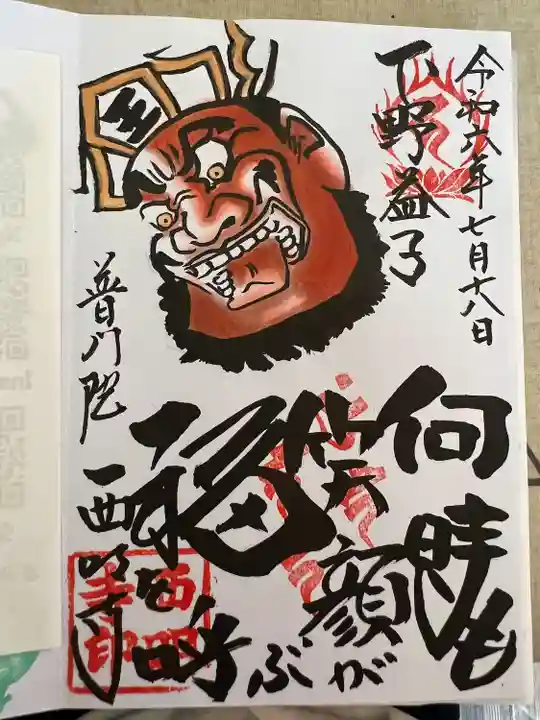 令和六年七月十八日
下野益子
王
何時も
笑顔が
福を呼ぶ
普門院
西明寺
西明寺印